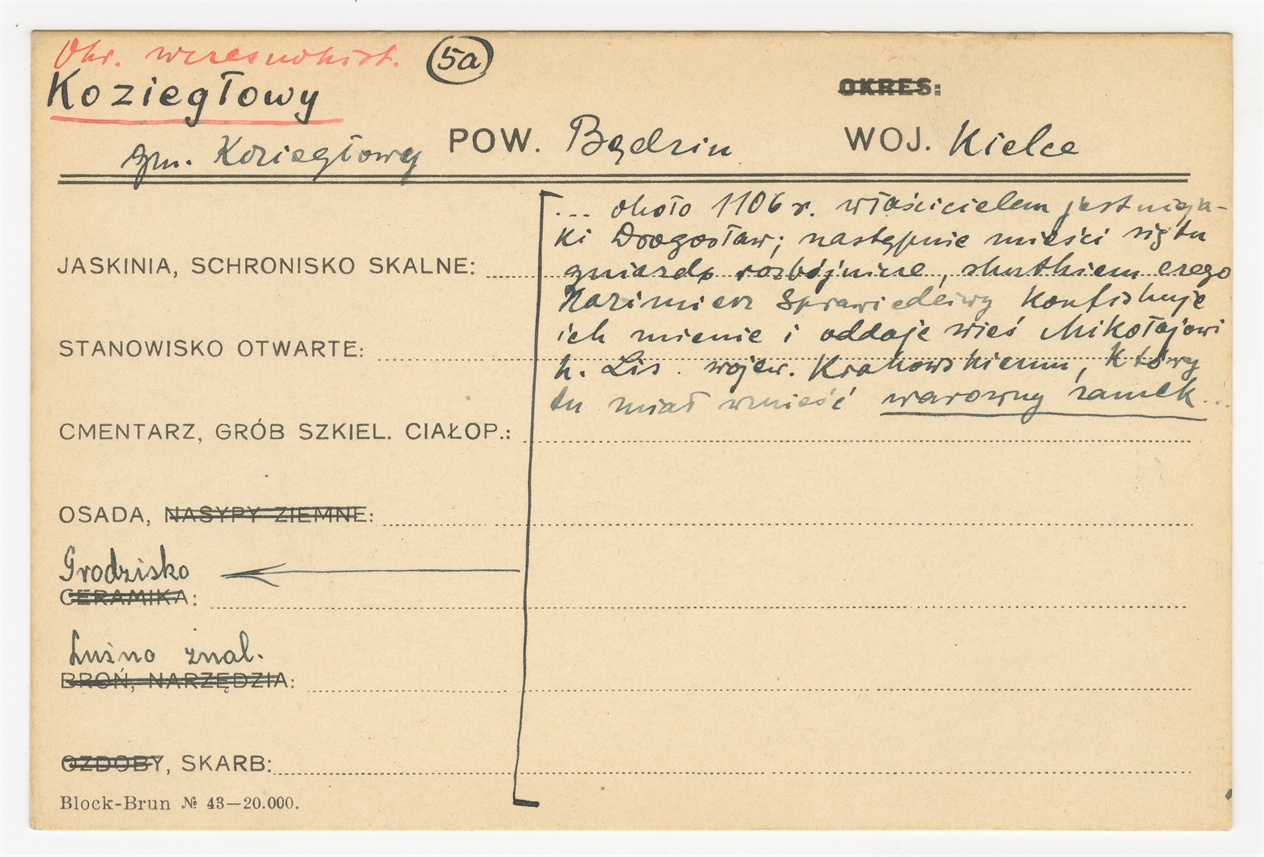 Okr. wczesnohist.
5a
Koziegłowy
OKRES:
gm. Koziegłowy POW. Będzin WOJ. Kielce
... około 1106 r. właścicielem jest nieja-
ki Drogosław; następnie mieści się tu
JASKINIA, SCHRONISKO SKALNE: gniazdo rozbójnicze, skutkiem czego
Kazimierz Sprawiedliwy konfiskuje
ich mienie i oddaje wieś Mikołajowi
STANOWISKO OTWARTE:
h. Lis. wojew. Krakowskiemu, który
tu miał wznieść warowny zamek...
CMENTARZ, GRÓB SZKIEL. CIAŁOP.:
OSADA, NASYPY ZIEMNE:
Grodzisko
CERAMIKA:
Luźno znal.
BROŃ, NARZĘDZIA:
OZDOBY, SKARB:
Block-Brun № 43—20.000.